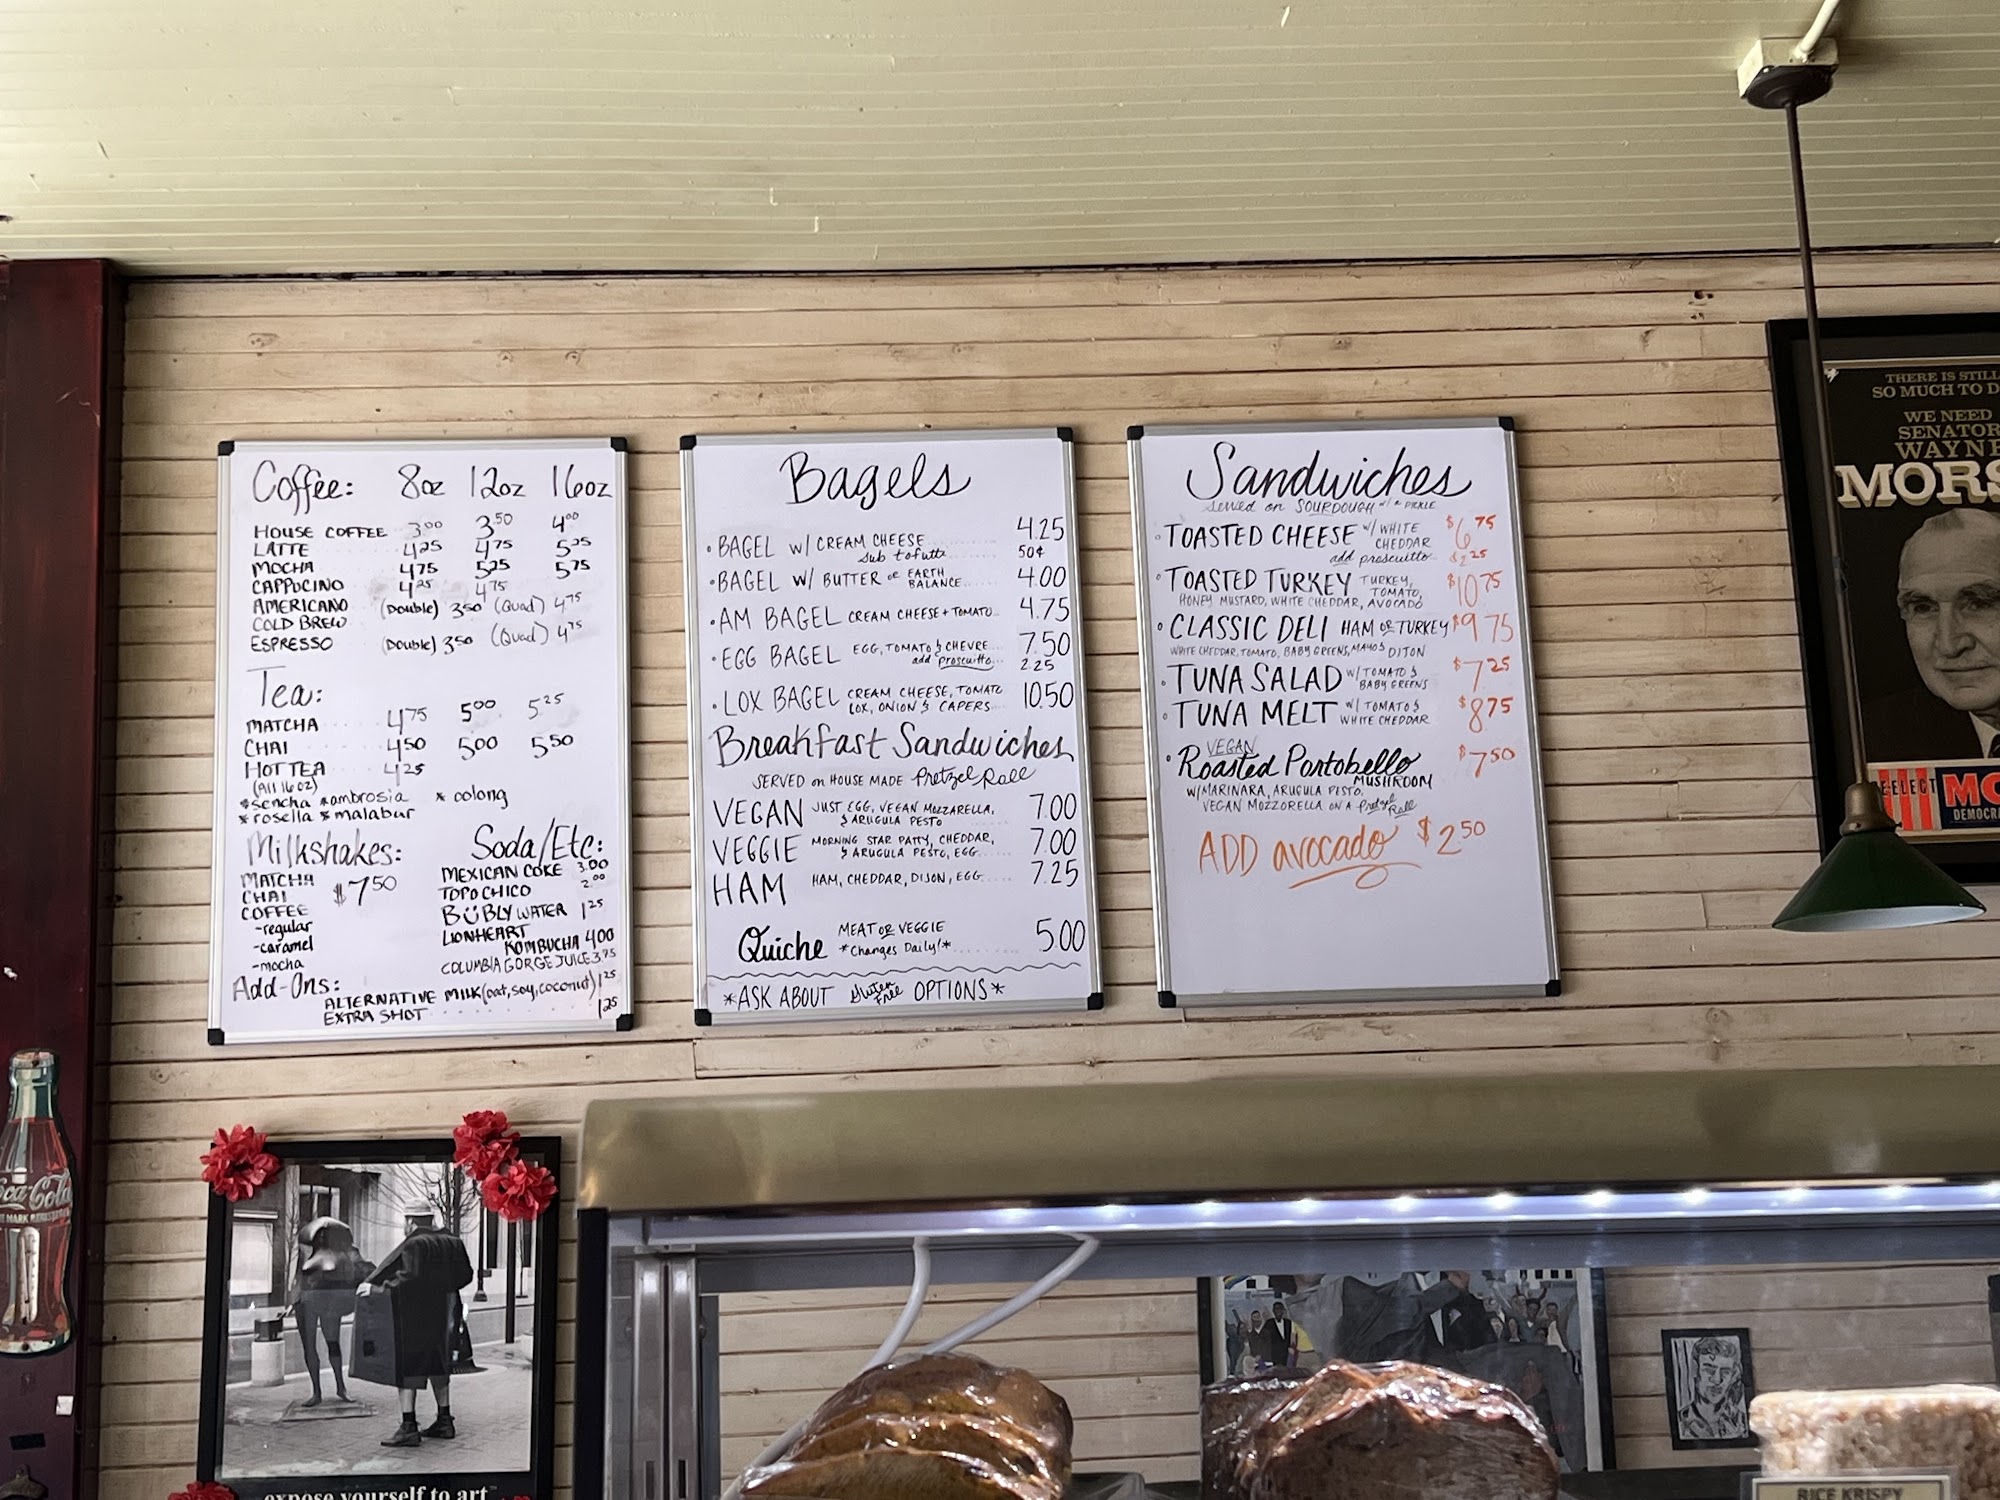 Coffee: 8oz 12oz 16oz
HOUSE COFFEE 3.00 3.50 4.00
LATTE 4.25 4.75 5.25
MOCHA 4.75 5.25 5.75
CAPPUCINO 4.25 4.75
AMERICANO (Double) 3.50 (Quad) 4.75
COLD BREW
ESPRESSO (Double) 3.50 (Quad) 4.75
Tea:
MATCHA 4.75 5.00 5.25
CHAI 4.50 5.00 5.50
HOT TEA 4.25
(All 16oz)
*sencha *ambrosia *oolong
*rosella *malabar
Milkshakes:
MATCHA $7.50
CHAI
COFFEE
-regular
-caramel
-mocha
Soda/Etc:
MEXICAN COKE 3.00
TOPO CHICO 2.00
BÜBLY WATER 1.25
LIONHEART
KOMBUCHA 4.00
COLUMBIA GORGE JUICE 3.75
Add-Ons:
ALTERNATIVE MILK (oat, soy, coconut) 1.25
EXTRA SHOT 1.25
Bagels
• BAGEL W/ CREAM CHEESE 4.25
Sub tofutti 50¢
• BAGEL W/ BUTTER or EARTH BALANCE 4.00
• AM BAGEL CREAM CHEESE + TOMATO 4.75
• EGG BAGEL EGG, TOMATO & CHEVRE 7.50
add prosciutto 2.25
• LOX BAGEL CREAM CHEESE, TOMATO 10.50
LOX, ONION & CAPERS
Breakfast Sandwiches
SERVED on HOUSE MADE Pretzel Roll
VEGAN JUST EGG, VEGAN MOZZARELLA, 7.00
& ARUGULA PESTO
VEGGIE MORNING STAR PATTY, CHEDDAR, 7.00
& ARUGULA PESTO, EGG
HAM HAM, CHEDDAR, DIJON, EGG 7.25
Quiche MEAT OR VEGGIE 5.00
*Changes Daily!*
*ASK ABOUT Gluten Free OPTIONS*
Sandwiches
served on SOURDOUGH w/ a PICKLE
• TOASTED CHEESE w/ WHITE CHEDDAR $6.75
add proscuitto $2.25
• TOASTED TURKEY TURKEY, TOMATO, $10.75
HONEY MUSTARD, WHITE CHEDDAR, AVOCADO
• CLASSIC DELI HAM OR TURKEY $9.75
WHITE CHEDDAR, TOMATO, BABY GREENS, MAYO & DIJON
• TUNA SALAD W/ TOMATO & BABY GREENS $7.25
• TUNA MELT W/ TOMATO & WHITE CHEDDAR $8.75
VEGAN
• Roasted Portobello $7.50
MUSHROOM
W/ MARINARA, ARUGULA PESTO,
VEGAN MOZZORELLA ON A Pretzel Roll
ADD avocado $2.50
THERE IS STILL
SO MUCH TO D
WE NEED
SENATOR
WAYNE
MORS
RE-ELECT MO
DEMOCRA
Coca-Cola
expose yourself to art
RICE KRISPY